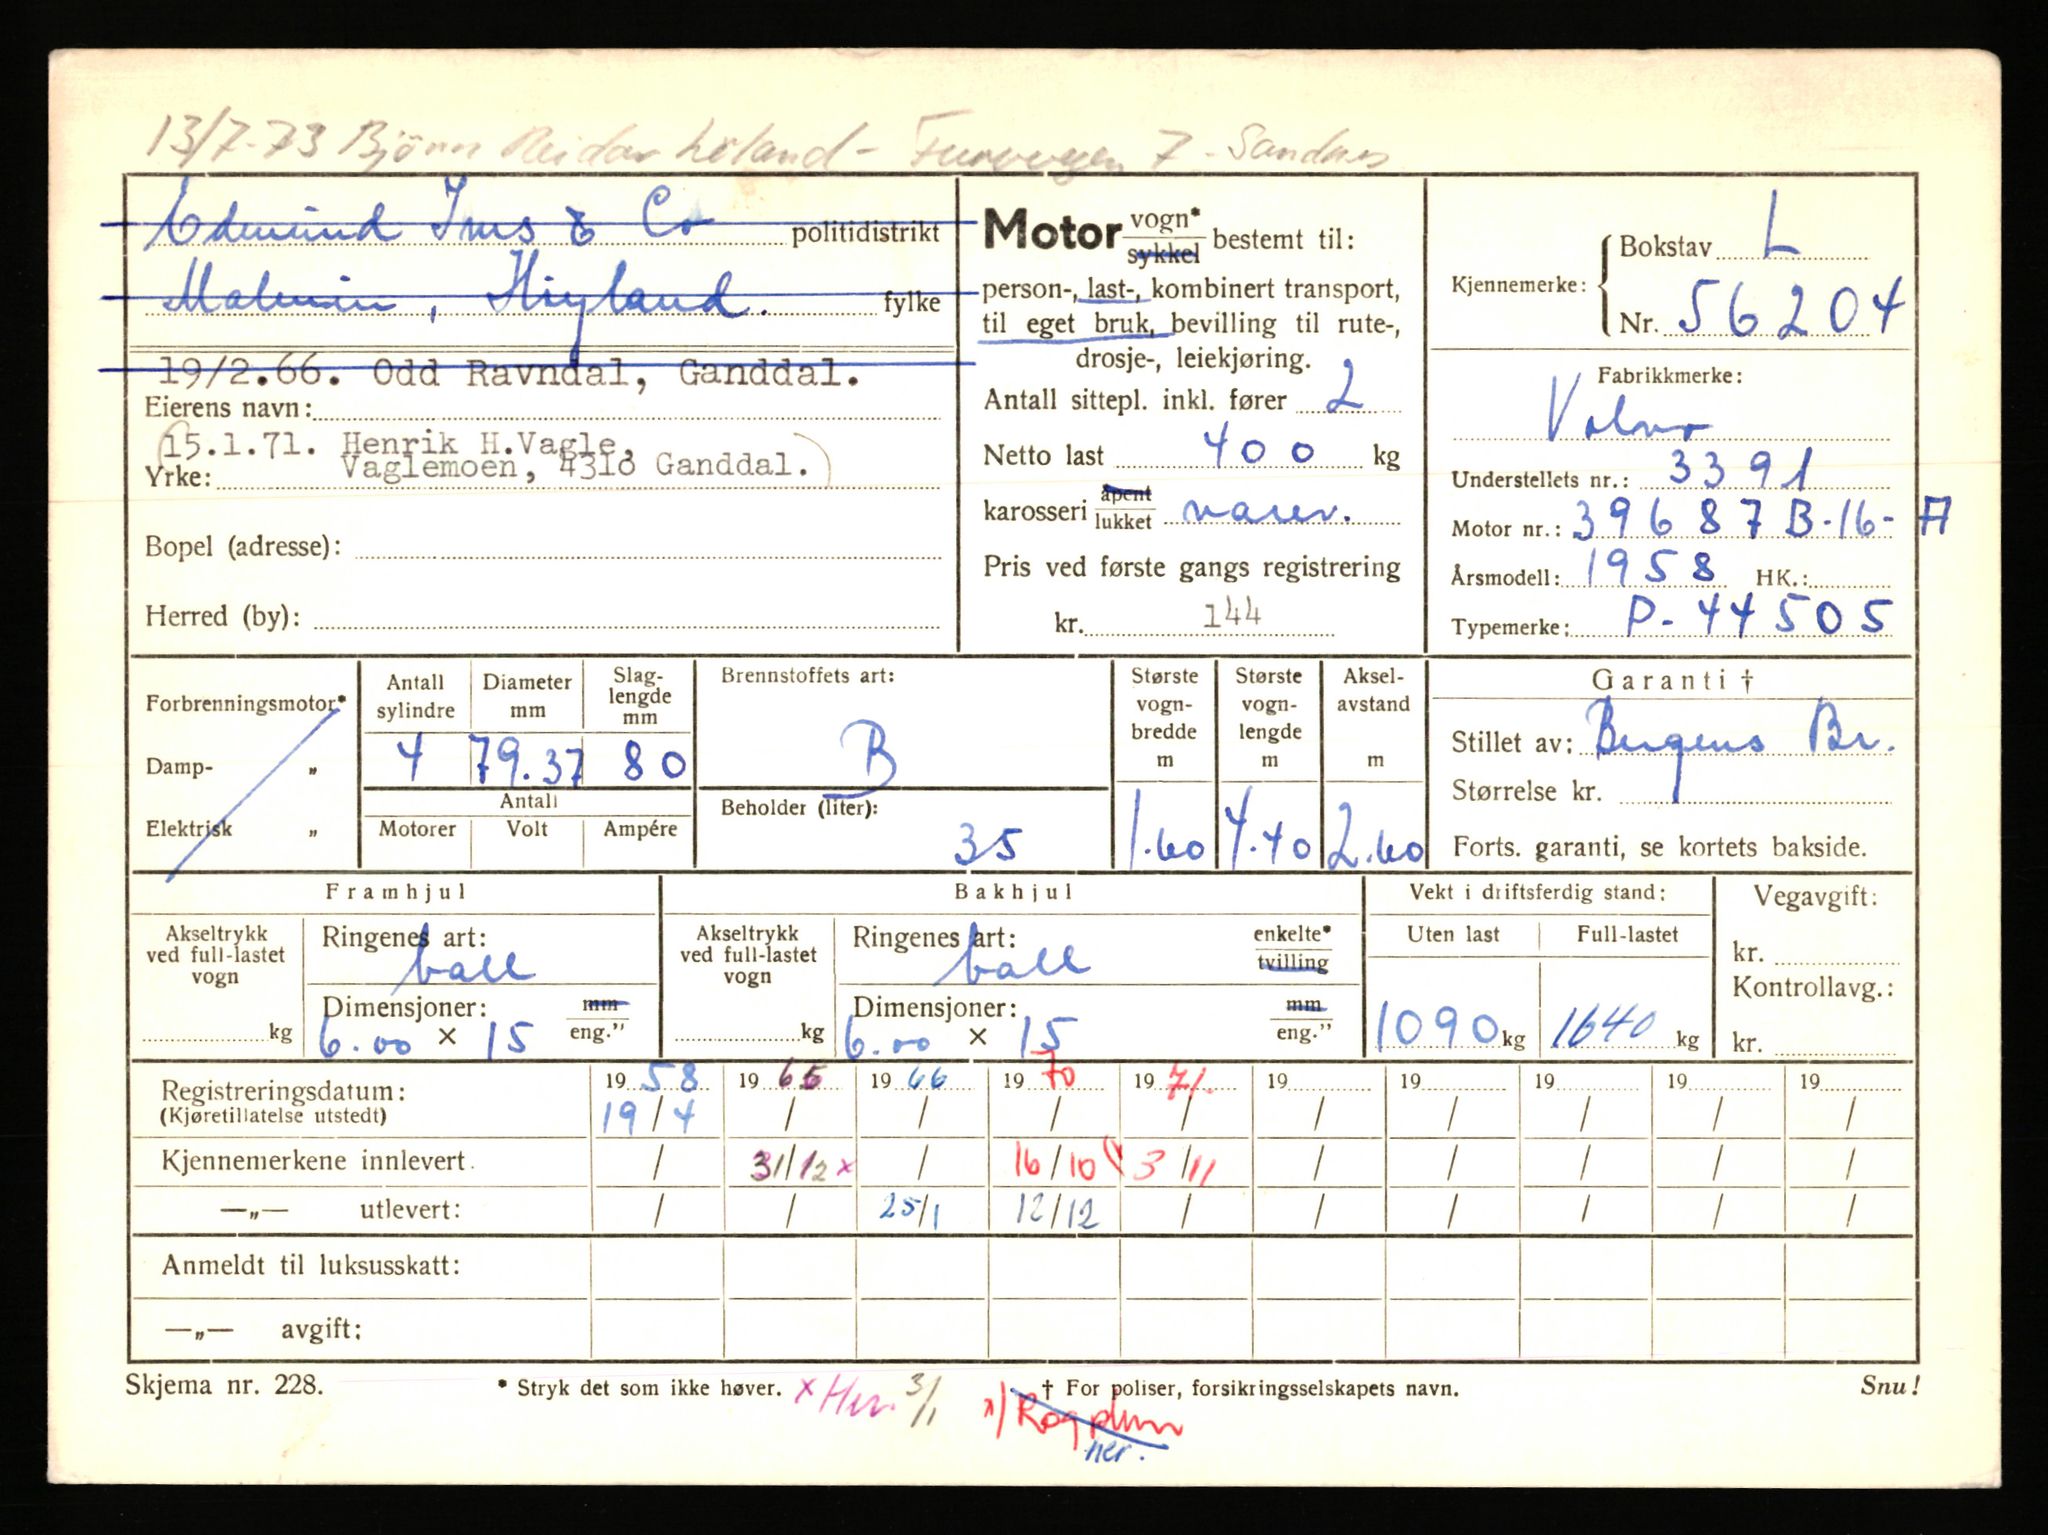 13/7-73 Bjönn Reidar Löland - Furuvegen 7 - Sandnes
Edmund Ims & Co politidistrikt
Malmin, Höyland. fylke
19/2.66. Odd Ravndal, Ganddal.
Eierens navn:
15.1.71. Henrik H.Vagle,
Vaglemoen, 4310 Ganddal.
Yrke:
Bopel (adresse):
Herred (by):
Motor vogn* sykkel bestemt til:
person-, last-, kombinert transport,
til eget bruk, bevilling til rute-,
drosje-, leiekjøring.
Antall sittepl. inkl. fører 2
Netto last 400 kg
karosseri åpent lukket varev.
Pris ved første gangs registrering
kr. 144
Kjennemerke: Bokstav L
Nr. 56204
Fabrikkmerke:
Volvo
Understellets nr.: 3391
Motor nr.: 39687 B-16-A
Årsmodell: 1958 HK.:
Typemerke: P-44505
Forbrenningsmotor*
Damp- „
Elektrisk „
Antall sylindre Diameter mm Slag-lengde mm
4 79.37 80
Antall
Motorer Volt Ampére
Brennstoffets art:
B
Beholder (liter):
35
Største vogn-bredde m Største vogn-lengde m Aksel-avstand m
1.60 4.40 2.60
Garanti †
Stillet av: Bergens Br.
Størrelse kr.
Forts. garanti, se kortets bakside.
Framhjul
Akseltrykk ved full-lastet vogn
kg
Ringenes art:
ball
Dimensjoner: mm
6.00 × 15 eng.”
Bakhjul
Akseltrykk ved full-lastet vogn
kg
Ringenes art: enkelte* tvilling
ball
Dimensjoner: mm
6.00 × 15 eng.”
Vekt i driftsferdig stand:
Uten last Full-lastet
1090 kg 1640 kg
Vegavgift:
kr.
Kontrollavg.:
kr.
Registreringsdatum: 19 58 19 65 19 66 19 70 19 71. 19 19 19 19 19
(Kjøretillatelse utstedt) 19/4 / / / / / / / / /
Kjennemerkene innlevert. / 31/12 x / 16/10 3/11 / / / / /
—„— utlevert: / / 25/1 12/12 / / / / / /
Anmeldt til luksusskatt:
—„— avgift:
Skjema nr. 228. * Stryk det som ikke høver. † For poliser, forsikringsselskapets navn. Snu!
3/1